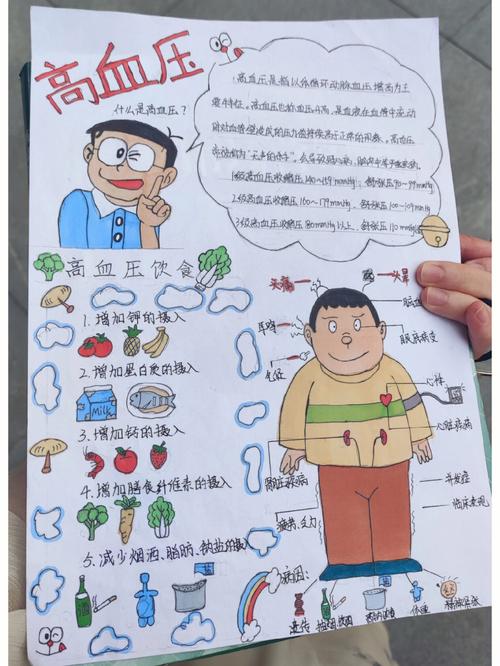 高血压
什么是高血压?
1.高血压是指以体循环动脉血压增高为主
要特征。高血压也称血压升高,是血液在血管中流动
时对血管壁造成的压力值持续高于正常的现象。高血压
会导致冠心病、脑卒中等严重疾病。
1级高血压收缩压140~159mmHg;舒张压90~99mmHg
2级高血压收缩压160~179mmHg、舒张压100~109mmHg
3级高血压收缩压180mmHg以上、舒张压110mmHg
高血压饮食
1.增加钾的摄入
2.增加蛋白质的摄入
Milk
3.增加钙的摄入
4.增加膳食纤维素的摄入
5.减少烟酒、脂肪、钠盐的摄入
头痛
头晕
耳鸣
眼底病变
心悸
心脏疾病
肾脏疾病
疲劳、乏力
并发症
临床表现
病因:
遗传
抽烟饮酒
高钠饮食
体重
精神紧张